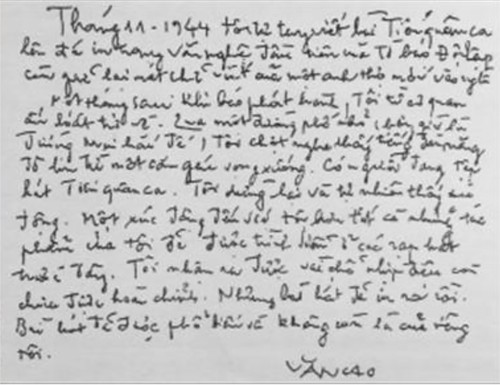 Tháng 11 - 1944 tôi tự tay viết bài Tiến quân ca
lên đá in trong văn nghệ đầu tiên mà tờ báo Độc lập
còn giữ lại nét chữ viết của một anh thợ mới vào nghề
Một tháng sau khi báo phát hành, Tôi từ cơ quan
ấn loát trở về. Qua một đường phố nhỏ (bây giờ là
đường Mai hắc Đế), Tôi chợt nghe thấy tiếng đàn măng
đô lin từ một căn gác vọng xuống. Có người đang tập
hát Tiến quân ca. Tôi dừng lại và tự nhiên thấy xúc
động. Một xúc động đến với tôi hơn tất cả những tác
phẩm của tôi đã được trình diễn ở các rạp hát
trước đây. Tôi nhận ra được vài chỗ nhịp điệu còn
chưa được hoàn chỉnh. Nhưng bài hát đã in ra rồi.
Bài hát đã được phổ biến và không còn là của riêng
tôi.
VĂN CAO